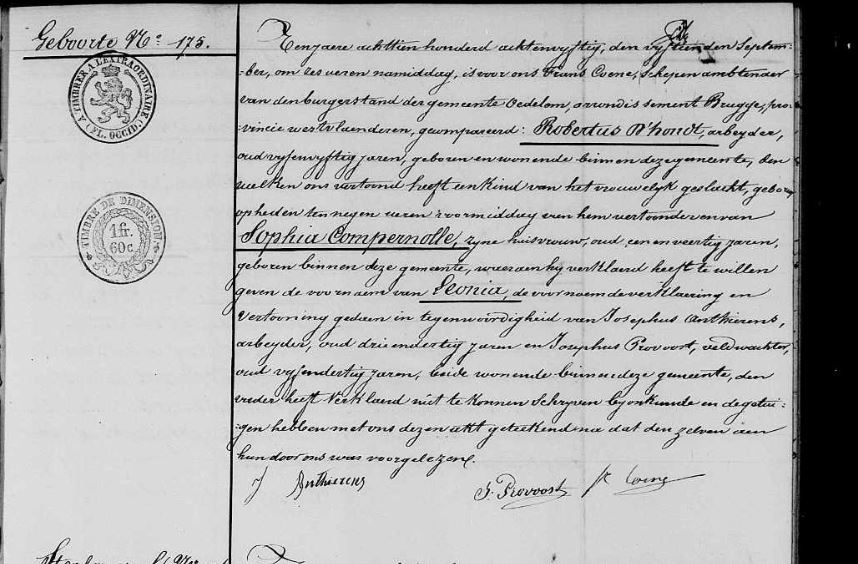 Geboorte N° 175.
A TIMBRER A L'EXTRAORDINAIRE
(FL. OCCID.)
TIMBRE DE DIMENSION
1 fr.
60 c.
Tenjaere achttien honderd achtenvyftig, den vyftienden Septem-
-ber, om zes ueren namiddag, is voor ons Frans Coene, Schepen ambtender
van den burgerstand der gemeente Oedelem, arrondissement Brugge, pro-
vincie westvlaenderen, gecompareerd: Robertus D'hondt, arbeyder,
oud vyfenvyftig jaren, geboren en wonende binnen deze gemeente, den
welken ons vertoond heeft een Kind van het vrouwelyk geslacht, geboren
op heden ten negen ueren voormiddag van hem vertoonder en van
Sophia Compernolle, zyne huisvrouw, oud een en veertig jaren,
geboren binnen deze gemeente, waeraen hy verklaerd heeft te willen
geven de voornaem van Leonia, de voornoemde verklaering en
Vertooning gedaen in tegenwoordigheid van Josephus Anthierens,
arbeyder, oud drie endertig jaren en Josephus Provoost, veldwachter,
oud vyfendertig jaren, beide wonende binnen deze gemeente, den
vader heeft Verklaerd niet te konnen Schryven by onkunde en de getui-
-gen hebben met ons dezen akt geteekend na dat den zelven aen
hun door ons was voorgelezen.
J Anthierens
J. Provoost
Fr Coene